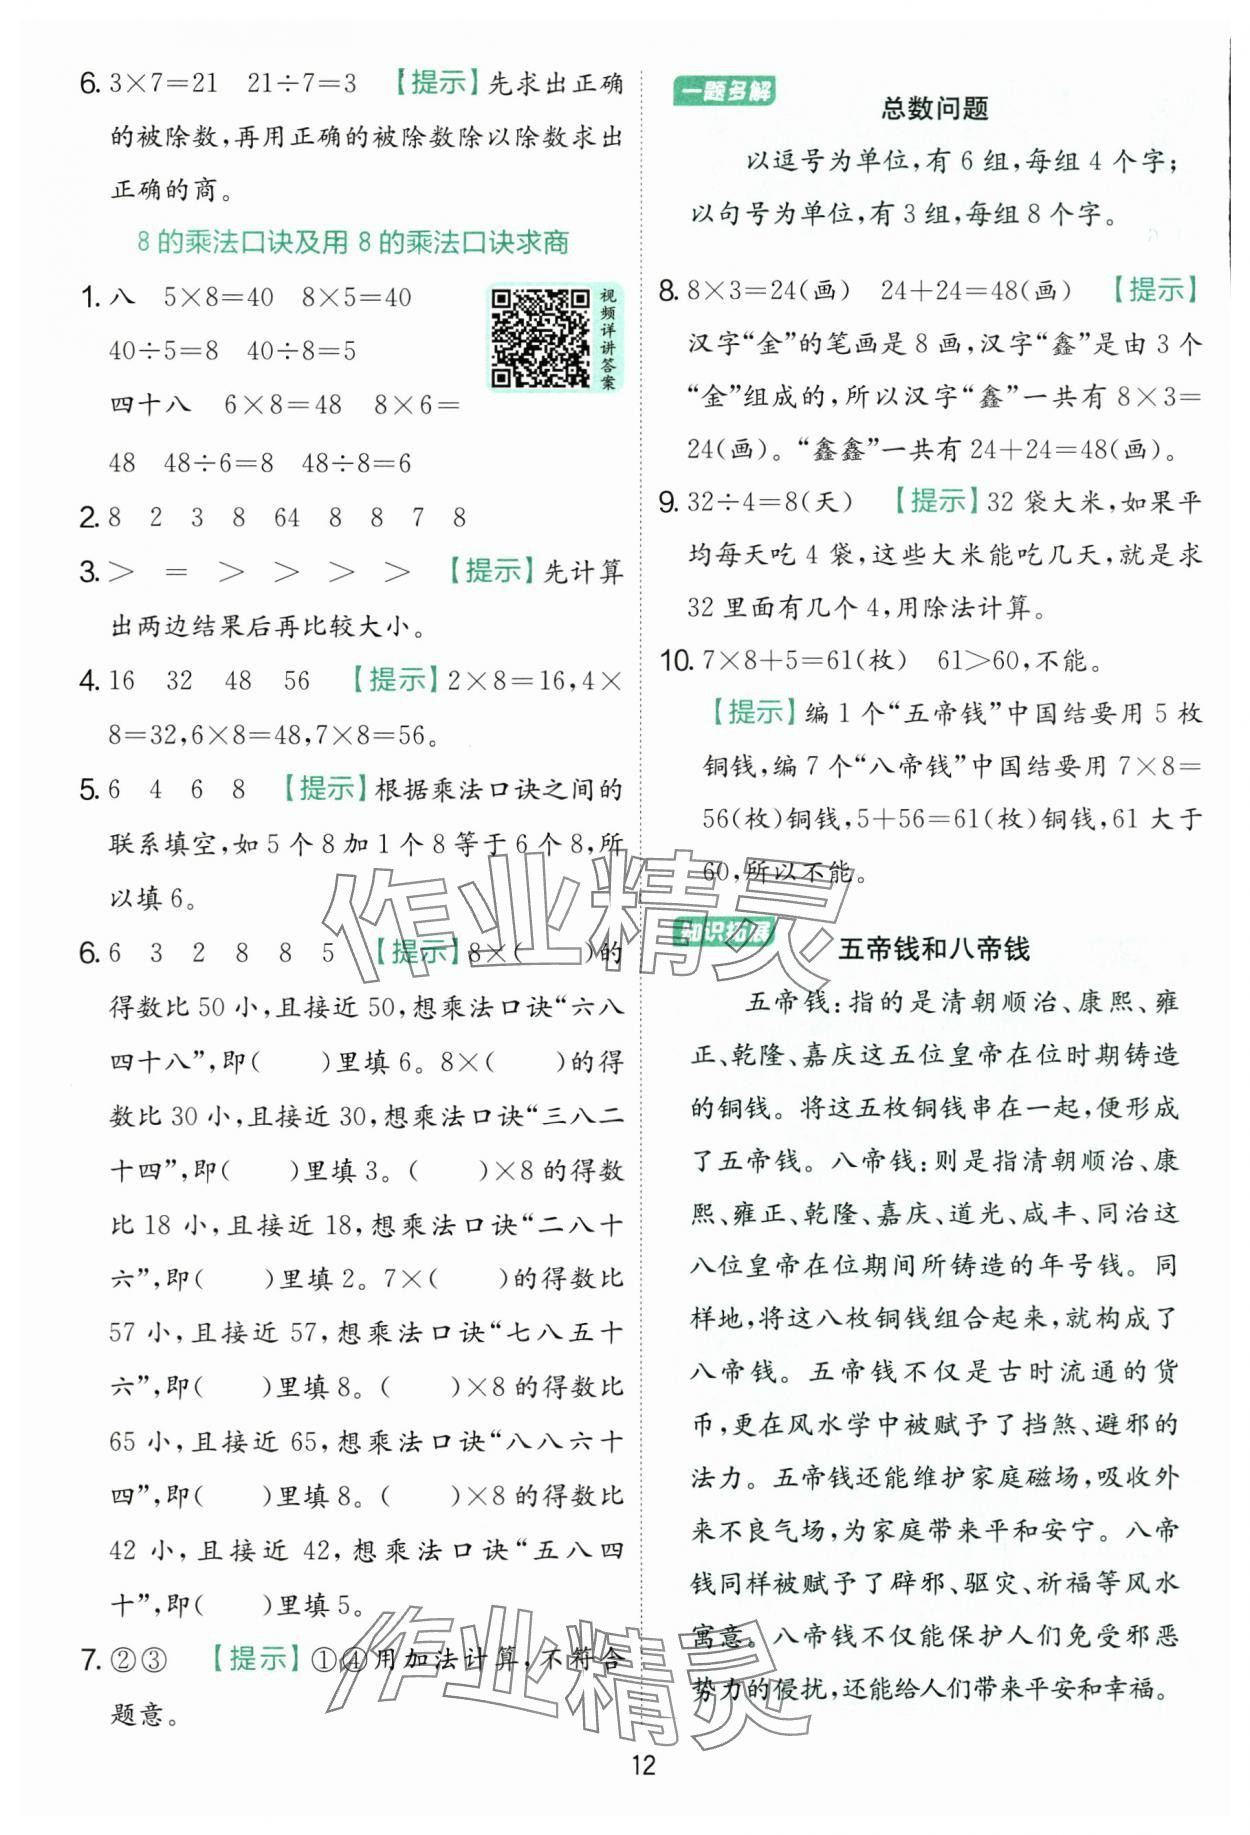 6. 3×7=21 21÷7=3 【提示】先求出正确
的被除数,再用正确的被除数除以除数求出
正确的商。
8 的乘法口诀及用 8 的乘法口诀求商
1. 八 5×8=40 8×5=40
40÷5=8 40÷8=5
四十八 6×8=48 8×6=
48 48÷6=8 48÷8=6
视频详讲答案
2. 8 2 3 8 64 8 8 7 8
3. > = > > > > 【提示】先计算
出两边结果后再比较大小。
4. 16 32 48 56 【提示】2×8=16,4×
8=32,6×8=48,7×8=56。
5. 6 4 6 8 【提示】根据乘法口诀之间的
联系填空,如 5 个 8 加 1 个 8 等于 6 个 8,所
以填 6。
6. 6 3 2 8 8 5 【提示】8×( )的
得数比 50 小,且接近 50,想乘法口诀“六八
四十八”,即( )里填 6。8×( )的得
数比 30 小,且接近 30,想乘法口诀“三八二
十四”,即( )里填 3。( )×8 的得数
比 18 小,且接近 18,想乘法口诀“二八十
六”,即( )里填 2。7×( )的得数比
57 小,且接近 57,想乘法口诀“七八五十
六”,即( )里填 8。( )×8 的得数比
65 小,且接近 65,想乘法口诀“八八六十
四”,即( )里填 8。( )×8 的得数比
42 小,且接近 42,想乘法口诀“五八四
十”,即( )里填 5。
7. ②③ 【提示】①④用加法计算,不符合
题意。
一题多解
总数问题
以逗号为单位,有 6 组,每组 4 个字;
以句号为单位,有 3 组,每组 8 个字。
8. 8×3=24(画) 24+24=48(画) 【提示】
汉字“金”的笔画是 8 画,汉字“鑫”是由 3 个
“金”组成的,所以汉字“鑫”一共有 8×3=
24(画)。“鑫鑫”一共有 24+24=48(画)。
9. 32÷4=8(天) 【提示】32 袋大米,如果平
均每天吃 4 袋,这些大米能吃几天,就是求
32 里面有几个 4,用除法计算。
10. 7×8+5=61(枚) 61>60,不能。
【提示】编 1 个“五帝钱”中国结要用 5 枚
铜钱,编 7 个“八帝钱”中国结要用 7×8=
56(枚)铜钱,5+56=61(枚)铜钱,61 大于
60,所以不能。
知识拓展
五帝钱和八帝钱
五帝钱:指的是清朝顺治、康熙、雍
正、乾隆、嘉庆这五位皇帝在位时期铸造
的铜钱。将这五枚铜钱串在一起,便形成
了五帝钱。八帝钱:则是指清朝顺治、康
熙、雍正、乾隆、嘉庆、道光、咸丰、同治这
八位皇帝在位期间所铸造的年号钱。同
样地,将这八枚铜钱组合起来,就构成了
八帝钱。五帝钱不仅是古时流通的货
币,更在风水学中被赋予了挡煞、避邪的
法力。五帝钱还能维护家庭磁场,吸收外
来不良气场,为家庭带来平和安宁。八帝
钱同样被赋予了辟邪、驱灾、祈福等风水
寓意。八帝钱不仅能保护人们免受邪恶
势力的侵扰,还能给人们带来平安和幸福。
作业精灵
作业精灵
12